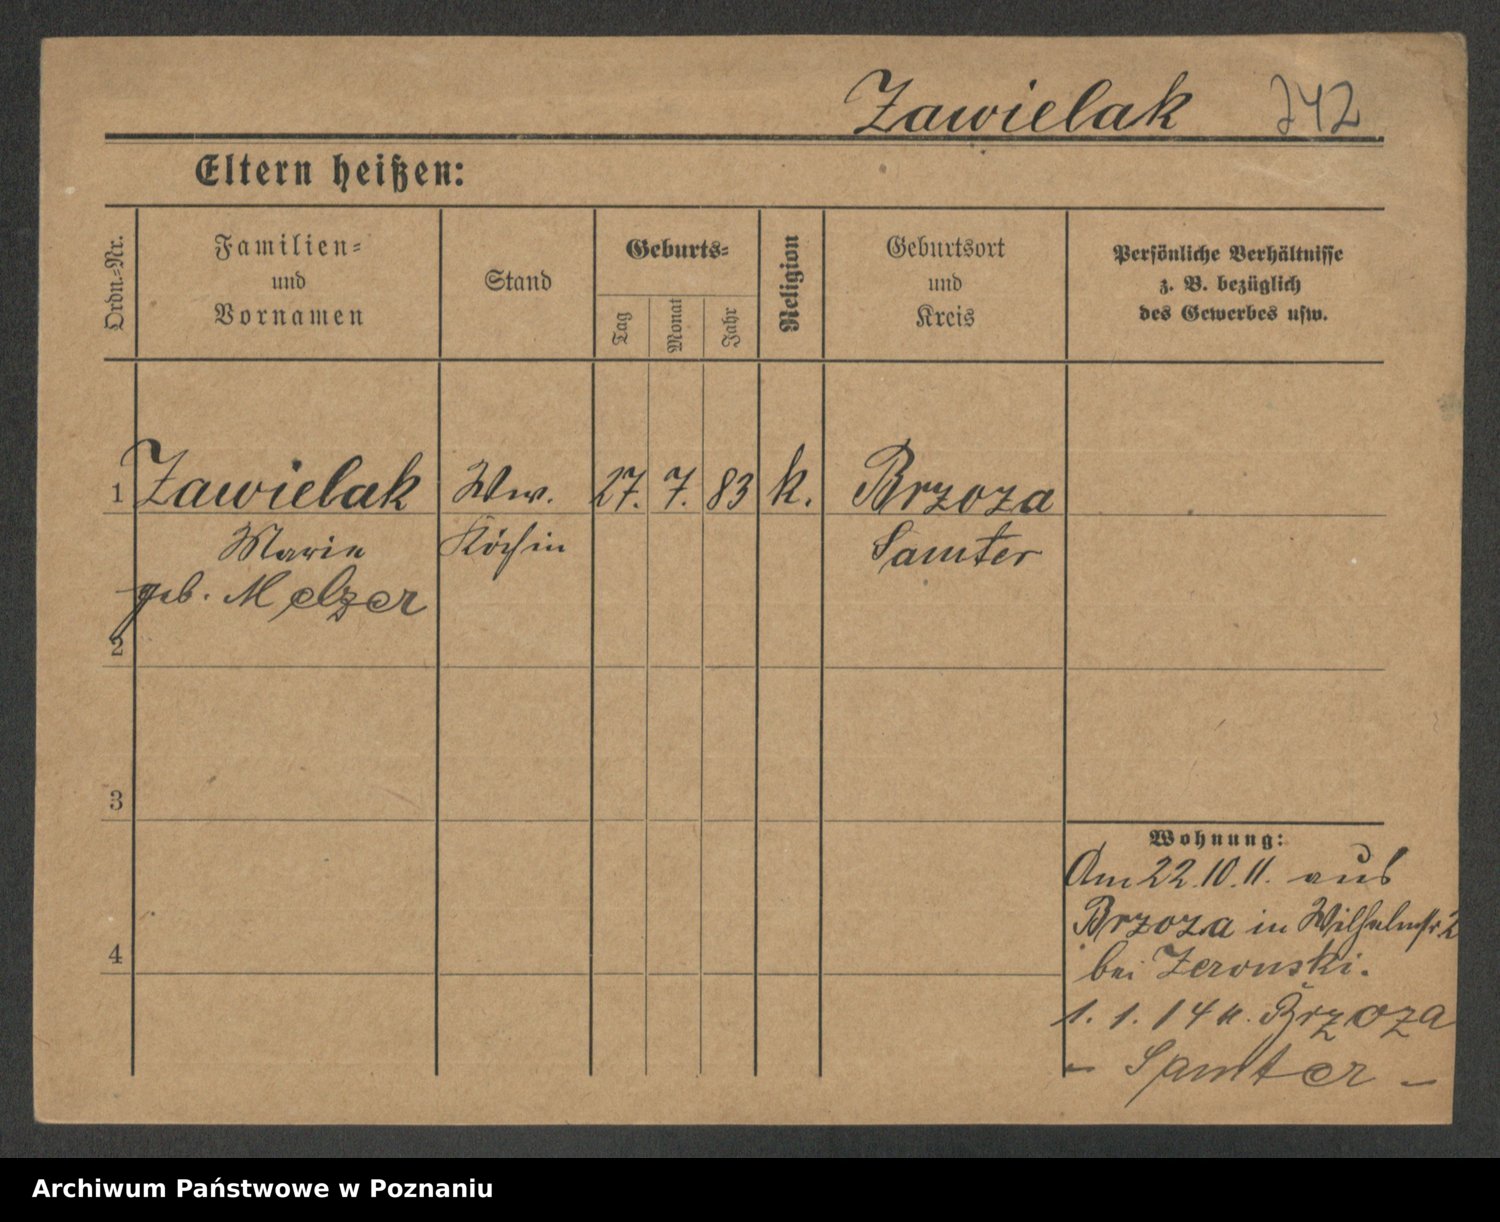 Zawielak 742
Eltern heißen:
Ordn.-Nr.
Familien-
und
Vornamen
Stand
Geburts-
Tag
Monat
Jahr
Religion
Geburtsort
und
Kreis
Persönliche Verhältnisse
z. B. bezüglich
des Gewerbes usw.
1 Zawielak Ww. 27. 7. 83 k. Brzoza
Marie Köchin Samter
geb. Melzer
2
3
4
Wohnung:
Am 22.10.11. aus
Brzoza in Wilhelmstr. 2
bei Zeronski.
1. 1. 14 n. Brzoza
- Samter -
Archiwum Państwowe w Poznaniu